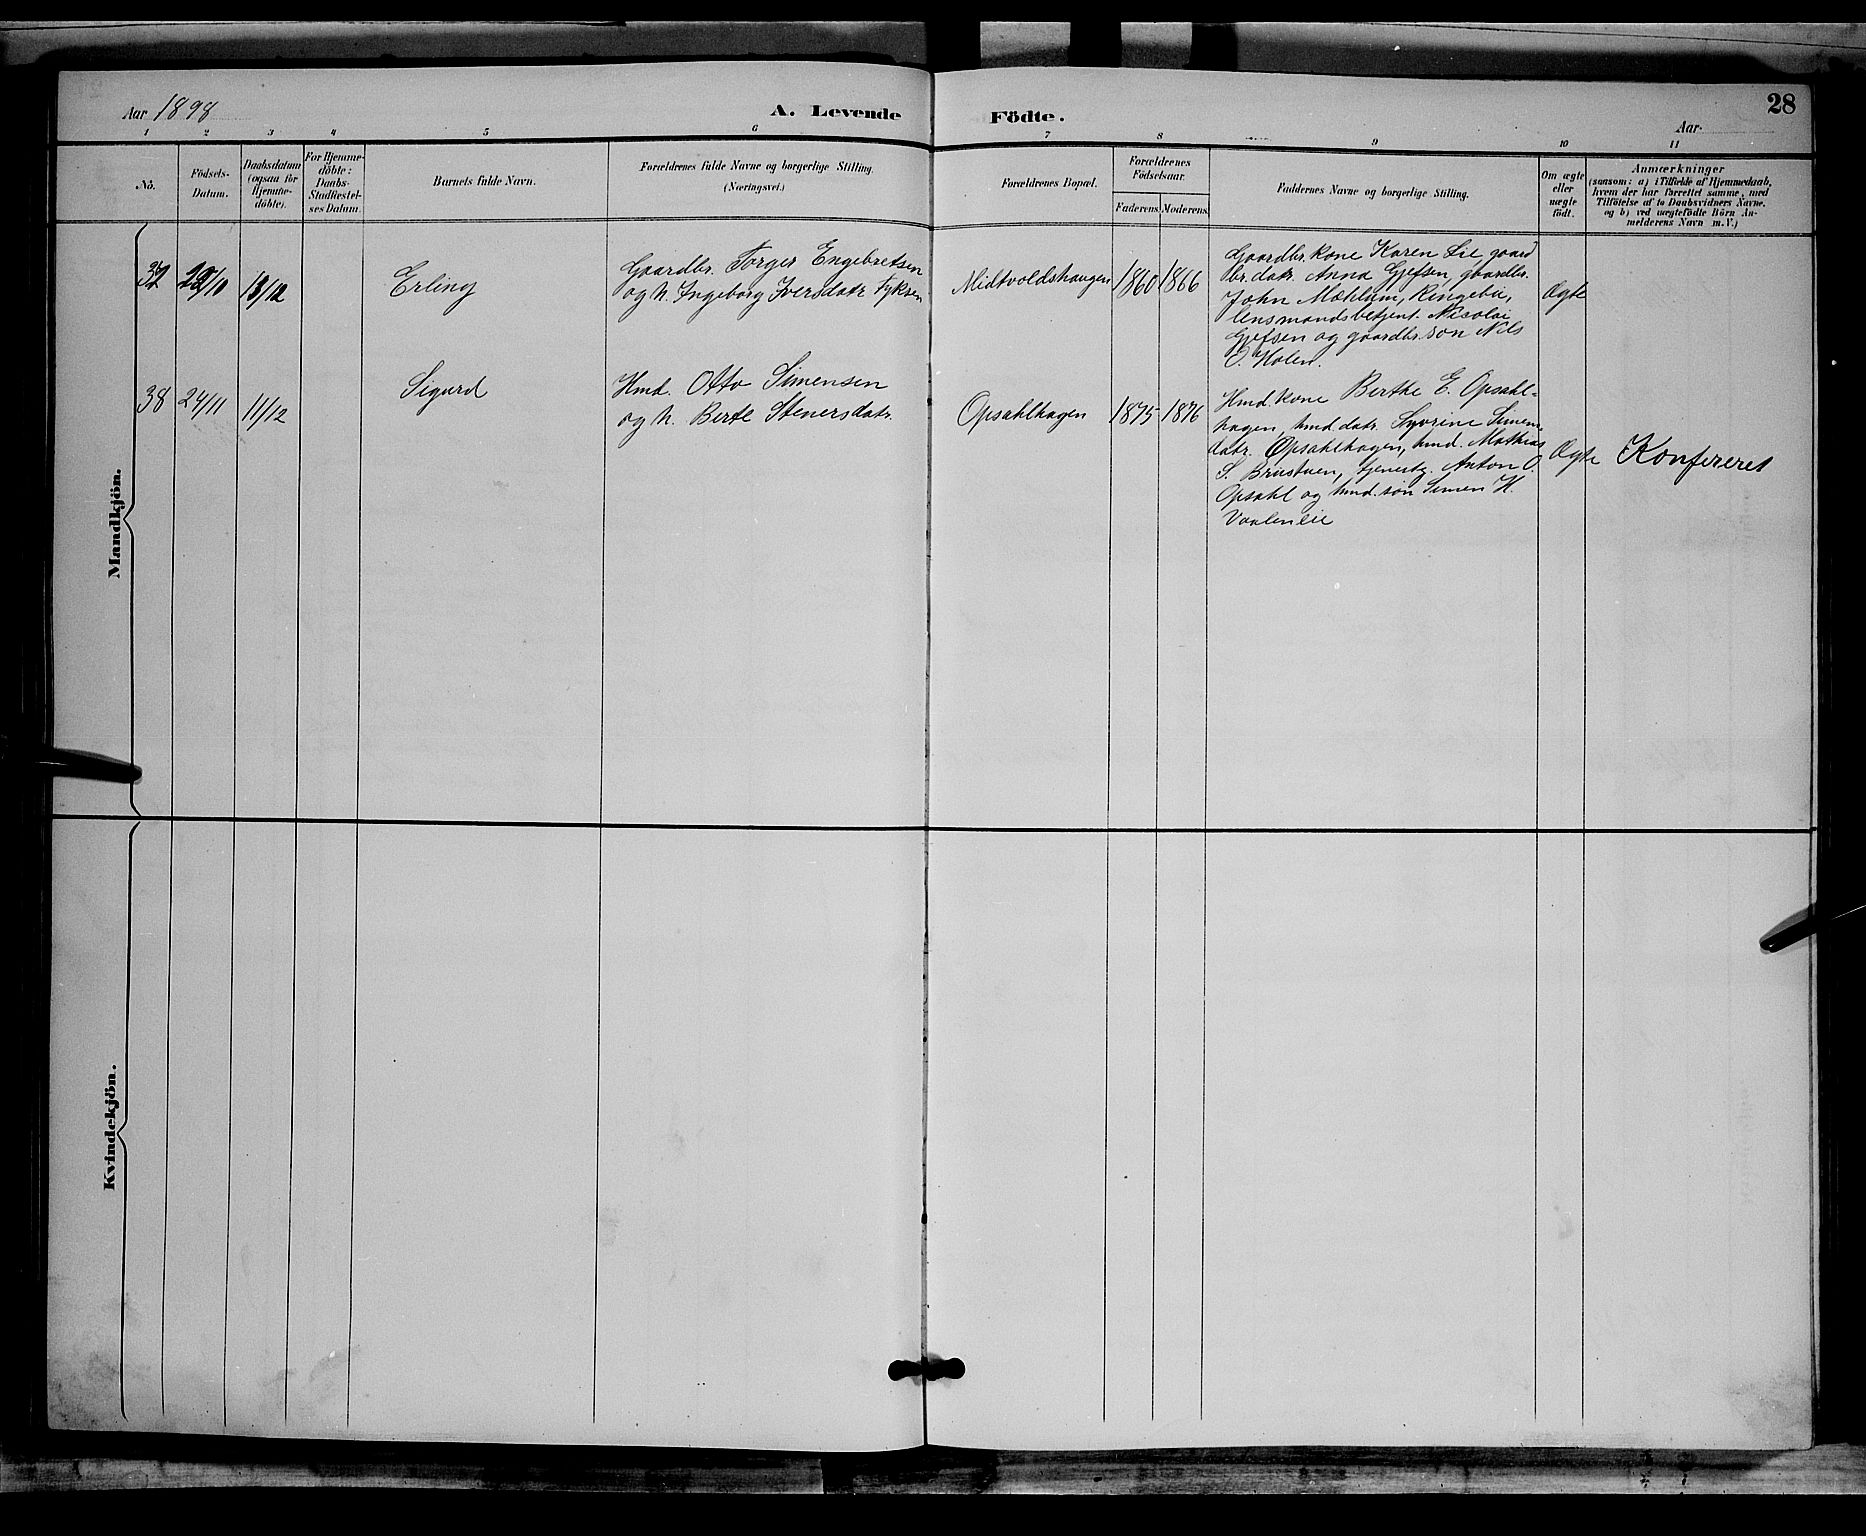 28
Aar 1898
A. Levende Födte.
Aar
1 2 3 4 5 6 7 8 9 10 11
No.
Födsels-
Datum.
Daabsdatum
(ogsaa for
Hjemme-
döbte).
For Hjemme-
döbte:
Daabs-
Stadfæstel-
ses Datum.
Barnets fulde Navn.
Forældrenes fulde Navne og borgerlige Stilling.
(Næringsvei.)
Forældrenes Bopæl.
Forældrenes
Födselsaar.
Faderens. Moderens.
Faddernes Navne og borgerlige Stilling.
Om ægte
eller
uægte
födt.
Anmærkninger
(saasom: a) i Tilfælde af Hjemmedaab,
hvem der har forrettet samme, med
Tilföielse af to Daabsvidners Navne.
og b) ved uægtefödte Börn An-
melderens Navn m. V.)
Mandkjön.
37
/10
13/12
Erling
Gaardbr. Torger Engebretsen
og h. Ingeborg Iversdatr Fyksen
Midtvoldshaugen
1860 1866
Gaardbr. kone Karen Lie gaard
br. datr. Anna Gjefsen, gaardbr.
John Mæhlum, Ringebu,
lensmandsbetjent. Nicolai
Gjefsen og gaardbr. søn Nils
O. Holen.
Ægte
38
24/11
11/12
Sigurd
Hmd. Otto Simensen
og h. Berte Stenersdatr.
Opsahlhagen
1875 1876
Hmd. kone Berthe E. Opsahl-
hagen, hmd. datr. Syverine Simens
datr. Opsahlhagen, hmd. Mathias
S. Brustuen, tjenestg. Anton O.
Opsahl og hmd. søn Simen H.
Vaaleneie
Ægte
Konfereret
Kvindekjön.